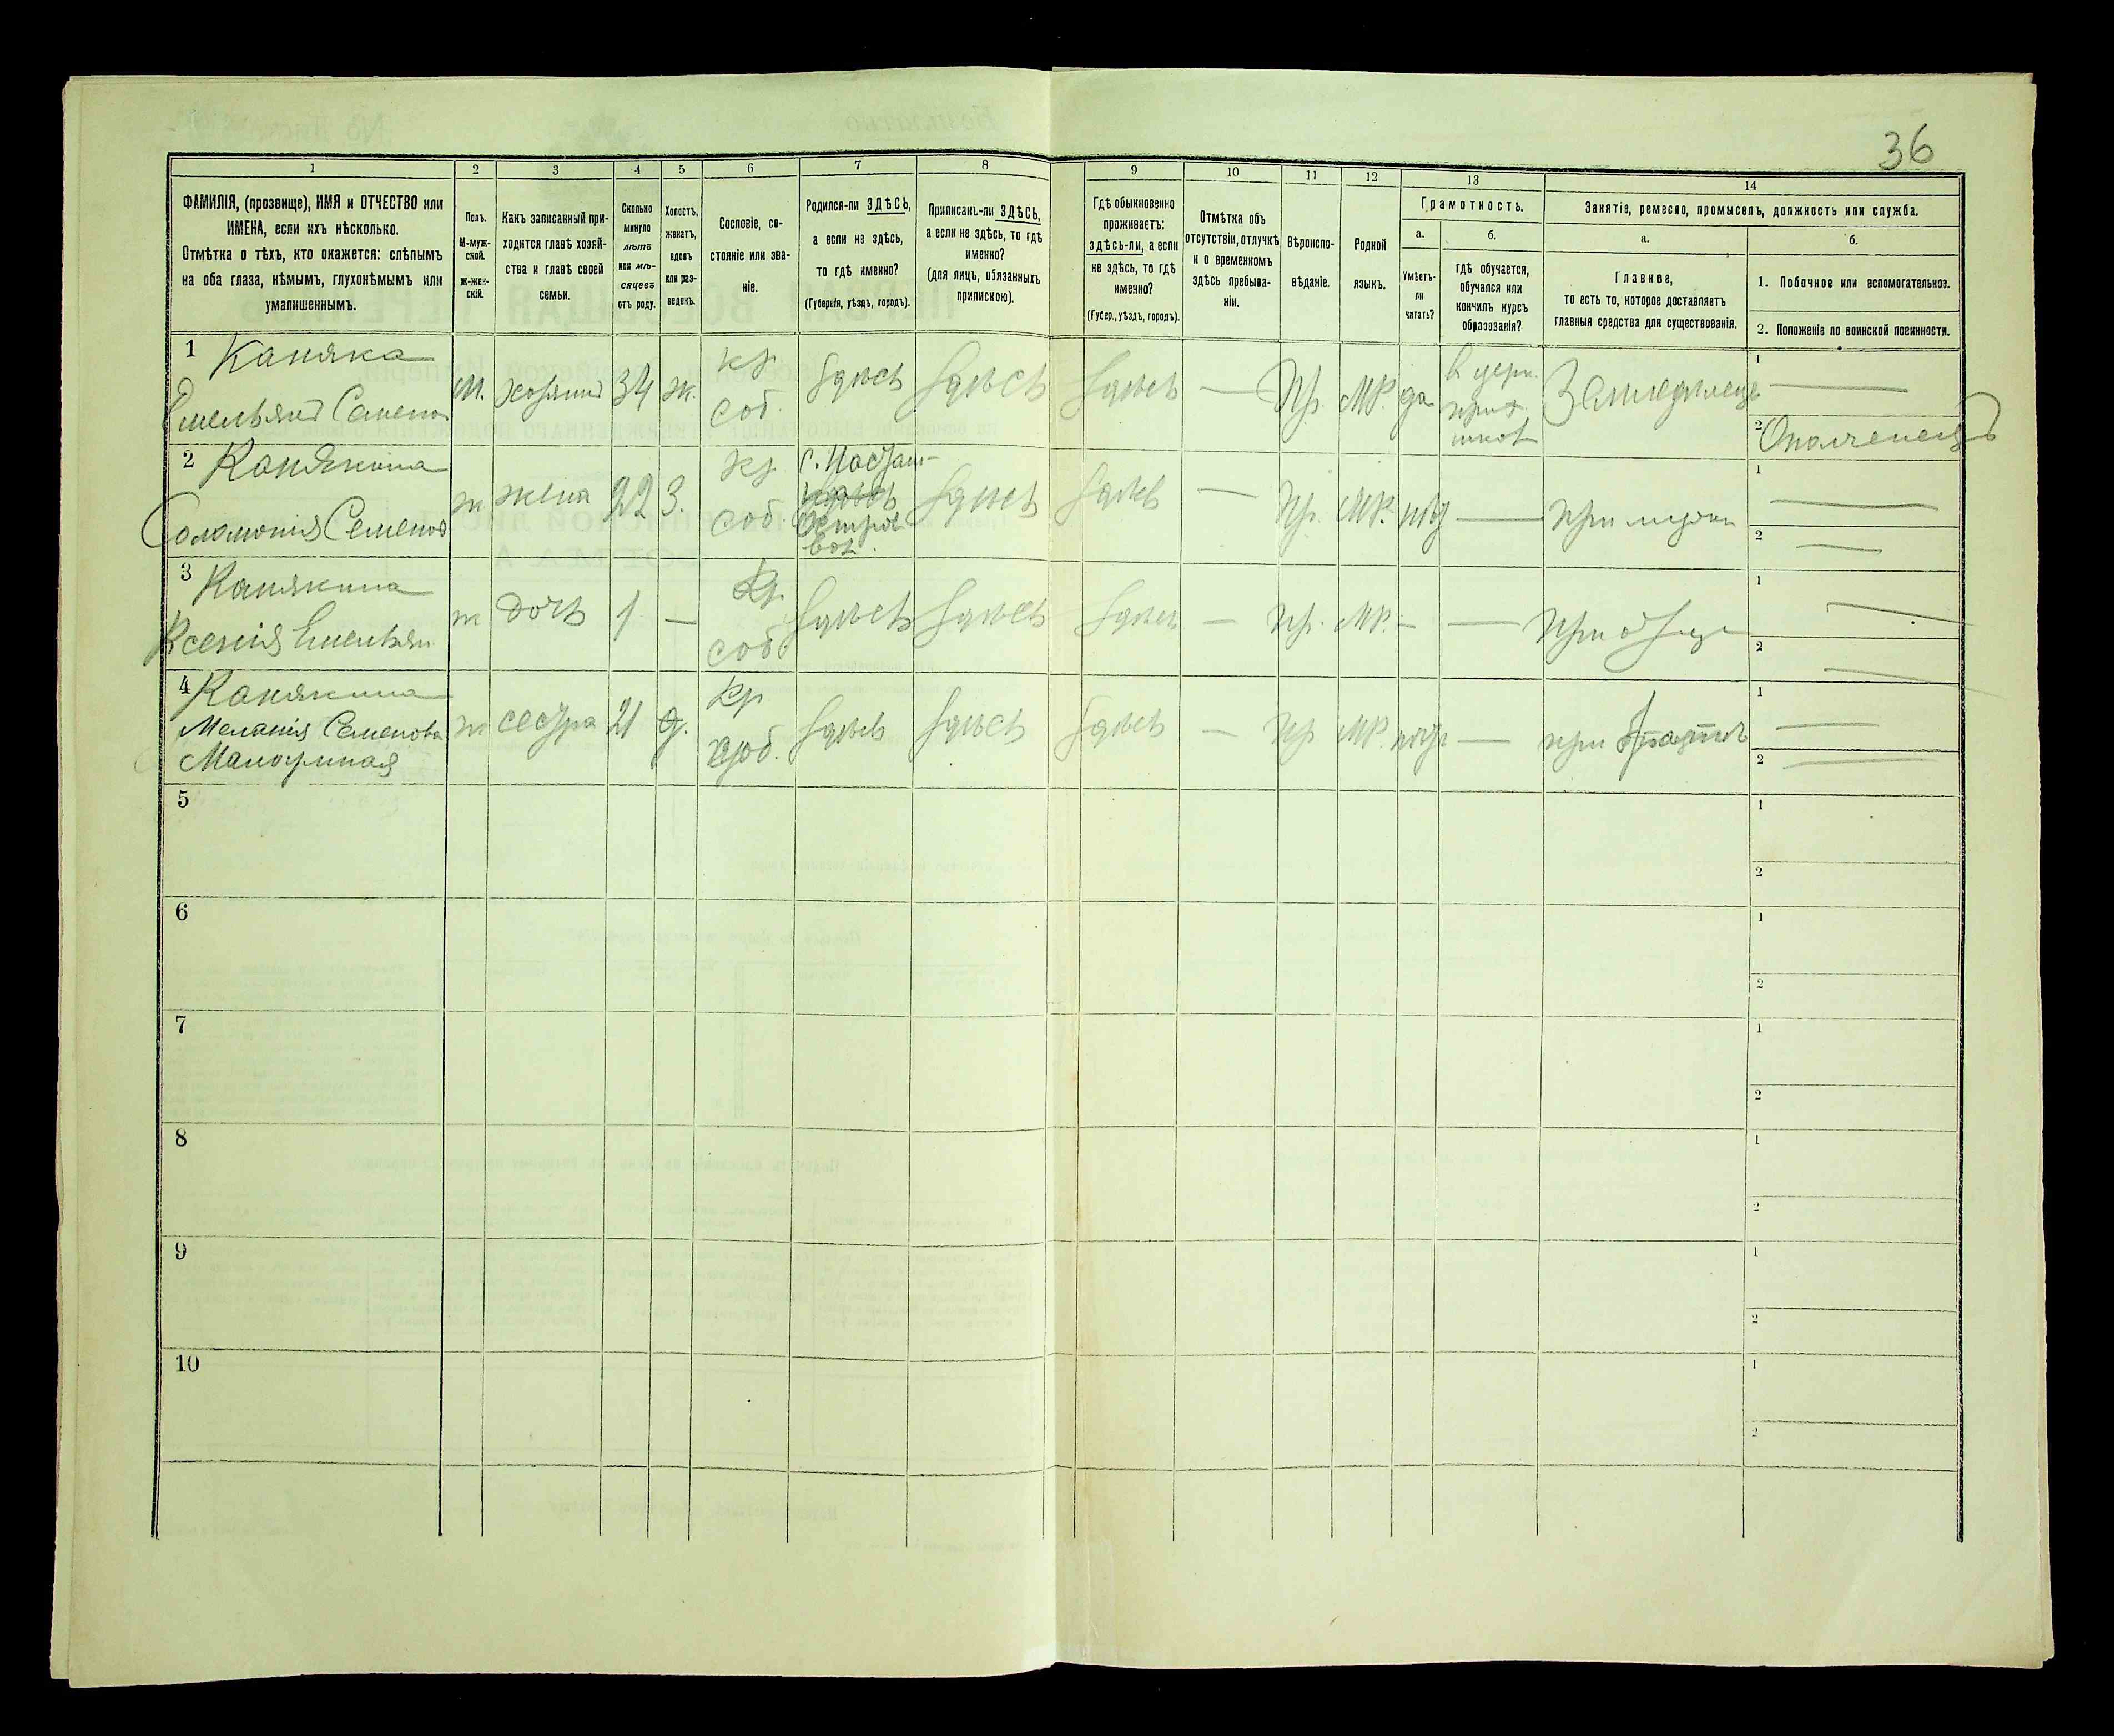 36
1 2 3 4 5 6 7 8 9 10 11 12 13 14
ФАМИЛІЯ, (прозвище), ИМЯ и ОТЧЕСТВО или
ИМЕНА, если ихъ нѣсколько.
Отмѣтка о тѣхъ, кто окажется: слѣпымъ
на оба глаза, нѣмымъ, глухонѣмымъ или
умалишеннымъ.
Полъ.
М-муж-
ской.
Ж-жен-
скій.
Какъ записанный при-
ходится главѣ хозяй-
ства и главѣ своей
семьи.
Сколько
минуло
лѣтъ
или мѣ-
сяцевъ
отъ роду.
Холостъ,
женатъ,
вдовъ
или раз-
веденъ.
Сословіе, со-
стояніе или зва-
ніе.
Родился-ли ЗДѢСЬ,
а если не здѣсь,
то гдѣ именно?
(Губернія, уѣздъ, городъ).
Приписанъ-ли ЗДѢСЬ,
а если не здѣсь, то гдѣ
именно?
(для лицъ, обязанныхъ
припискою).
Гдѣ обыкновенно
проживаетъ:
здѣсь-ли, а если
не здѣсь, то гдѣ
именно?
(Губер., уѣздъ, городъ).
Отмѣтка объ
отсутствіи, отлучкѣ
и о временномъ
здѣсь пребыва-
ніи.
Вѣроиспо-
вѣданіе.
Родной
языкъ.
Грамотность.
а.
Умѣетъ-
ли
читать?
б.
гдѣ обучается,
обучался или
кончилъ курсъ
образованія?
Занятіе, ремесло, промыселъ, должность или служба.
а.
Главное,
то есть то, которое доставляетъ
главныя средства для существованія.
б.
1. Побочное или вспомогательноэ.
2. Положеніе по воинской повинности.
1 Каняка
Емельянъ Семенов
м. хозяинъ 34 ж.
кр
соб.
здѣсь здѣсь здѣсь — Пр. МР. да
в церк.
прих.
школ
Земледѣлецъ
1 —
2 Ополченецъ
2 Канякина
Соломонія Семенов
ж жена 22 З.
кр
соб.
здѣсь здѣсь — Пр. МР. —
1 —
2 —
3 Канякина
Ксенія Емельян
ж дочь 1 —
Кр.
соб.
здѣсь здѣсь здѣсь — Пр. МР. — — При отце
1 —
2 —
4 Канякина
Меланія Семенова
Малоумная
ж сестра 21 д.
Кр
соб.
здѣсь здѣсь здѣсь — Пр МР. — при
1 —
2 —
5 1
2
6 1
2
7 1
2
8 1
2
9 1
2
10 1
2